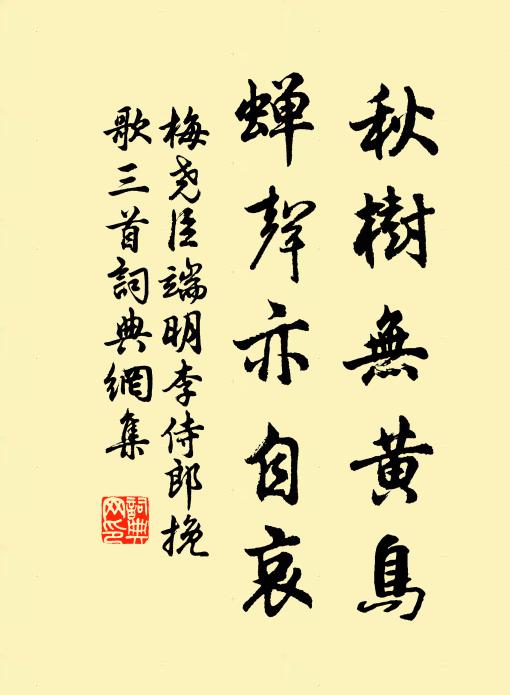 秋樹無黃鳥
蟬聲亦自哀
梅堯臣端明李侍郎挽
歌三首詞典網集
詞典
网印